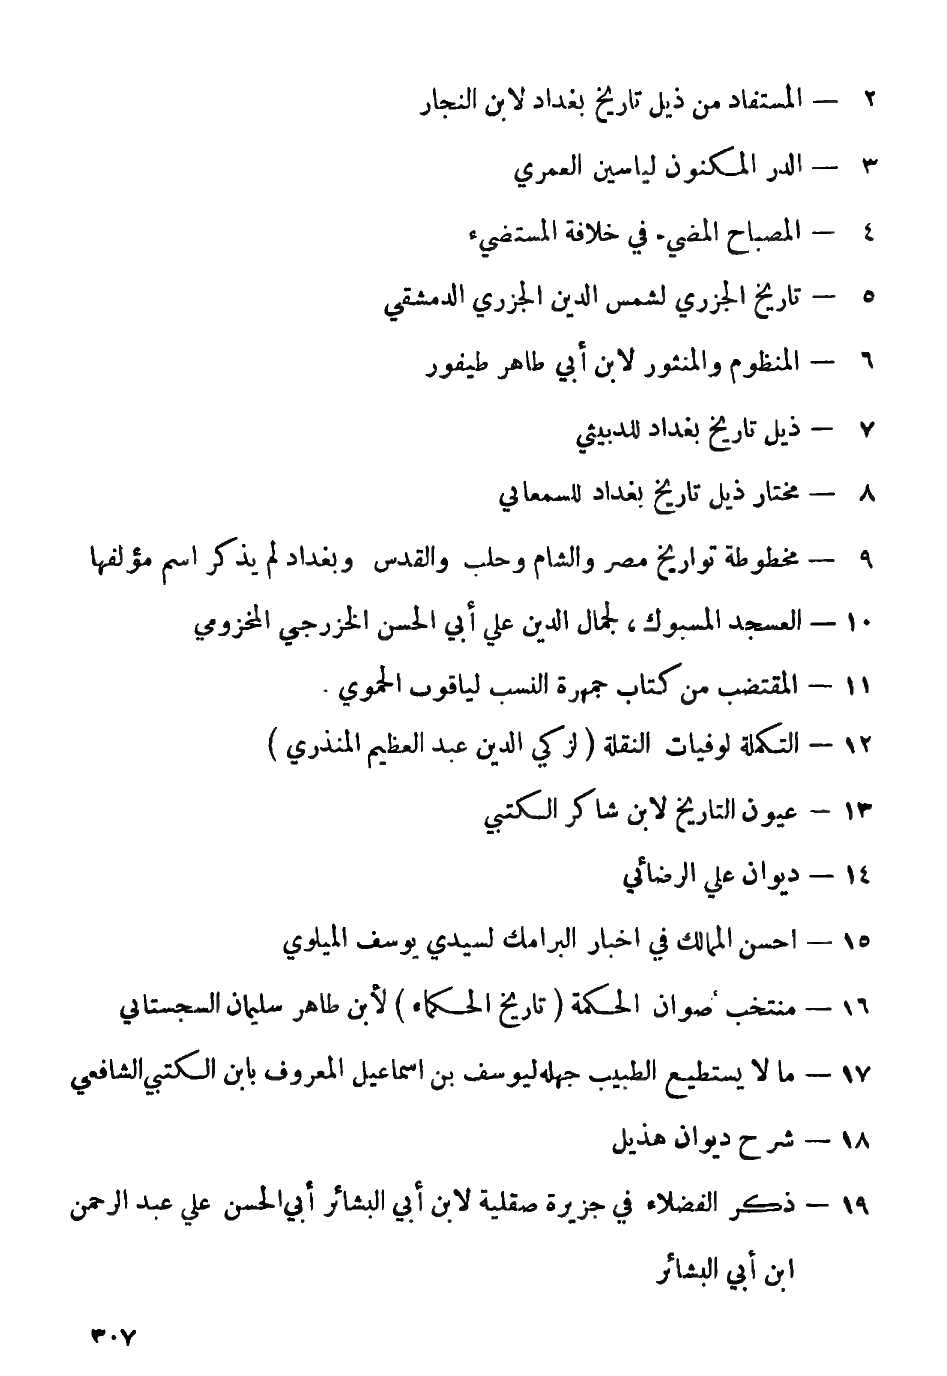 ٢ — المستفاد من ذيل تاريخ بغداد لابن النجار
٣ — الدر المكنون لياسين العمري
٤ — المصباح المضيء في خلافة المستضيء
٥ — تاريخ الجزري لشمس الدين الجزري الدمشقي
٦ — المنظوم والمنثور لابن أبي طاهر طيفور
٧ — ذيل تاريخ بغداد للدبيثي
٨ — مختار ذيل تاريخ بغداد للسمعاني
٩ — مخطوطة تواريخ مصر والشام وحلب والقدس وبغداد لم يذكر اسم مؤلفها
١٠ — العسجد المسبوك ، لجمال الدين علي أبي الحسن الخزرجي المخزومي
١١ — المقتضب من كتاب جمهرة النسب لياقوب الحموي .
١٢ — التكملة لوفيات النقلة ( لزكي الدين عبد العظيم المنذري )
١٣ — عيون التاريخ لابن شاكر الكتبي
١٤ — ديوان علي الرضائي
١٥ — احسن الممالك في اخبار البرامك لسيدي يوسف الميلوي
١٦ — منتخب صوان الحكمة ( تاريخ الحكماء ) لأبن طاهر سليمان السجستاني
١٧ — ما لا يستطيع الطبيب جهله ليوسف بن اسماعيل المعروف بابن الكتبي الشافعي
١٨ — شرح ديوان هذيل
١٩ — ذكر الفضلاء في جزيرة صقلية لابن أبي البشائر أبي الحسن علي عبد الرحمن
ابن أبي البشائر
٣٠٧